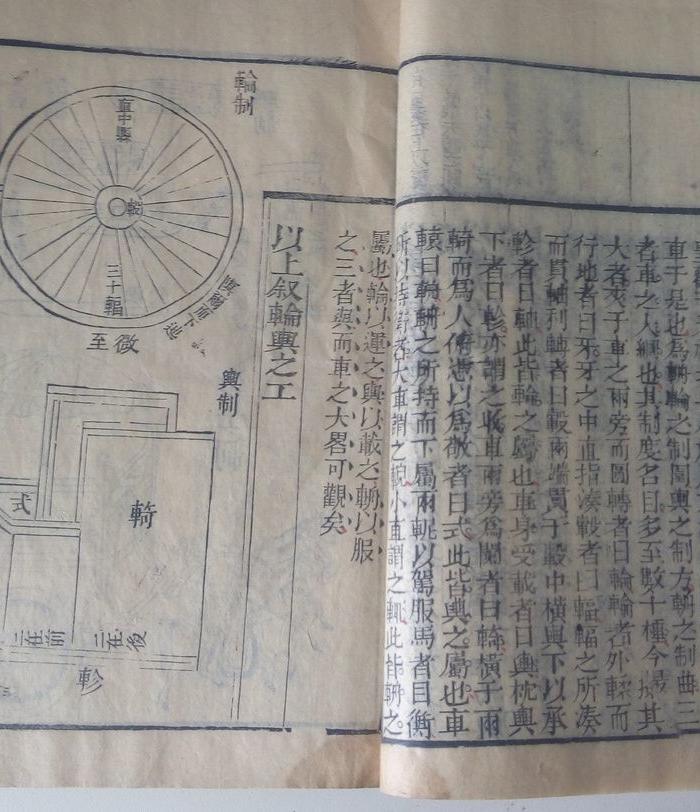 車于是也爲輈輪之制圓輿之制方輈之制曲三
者車之大綱也其制度名目多至數十種今最其
大者夾于車之兩旁而圓轉者曰輪輪者外輮而
行地者曰牙牙之中直指湊轂者曰輻輻之所湊
而貫軸利轉者曰轂兩端貫于轂中橫輿下以承
軫者曰軸此皆輪之屬也車身受載者曰輿枕輿
下者曰軫亦謂之收車兩旁爲闌者曰輢橫于兩
輢而爲人俯憑以爲敬者曰式此皆輿之屬也車
轅曰輈輈之所持而下屬兩軏以駕服馬者曰衡
所以持衡者大車謂之輗小車謂之軏此皆輈之
屬也輪以運之輿以載之輈以服
之三者與而車之大畧可觀矣
以上叙輪輿之工
輪制
直中縣
轂
三十輻
微至
輿制
輢
式
二在前
二在後
軫